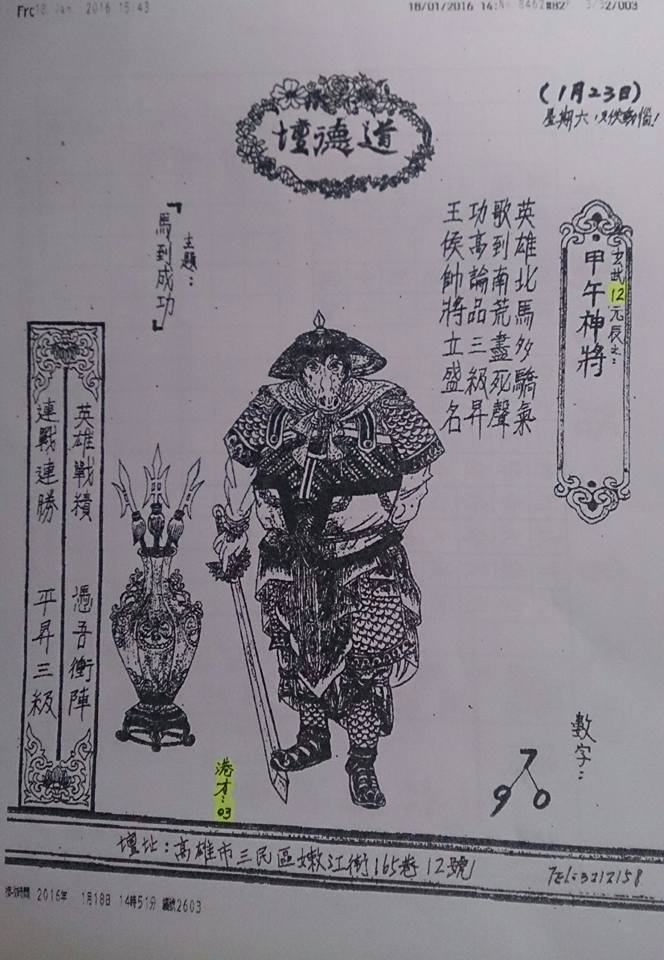 2016 15:43
18/01/2016 14:
(1月23日)
星期六
道德壇
玄武12元辰之:
甲午神將
英雄北馬多驕氣
歌到南荒盡死聲
功高論品三級昇
王侯帥將立盛名
主題:
『馬到成功』
英雄戰績 憑吾衝陣
連戰連勝 平昇三級
港才:03
數字:
7
9 0
壇址:高雄市三民區嫩江街165巷12號
Tel:3212158
2016年 1月18日 14時51分 編號2603